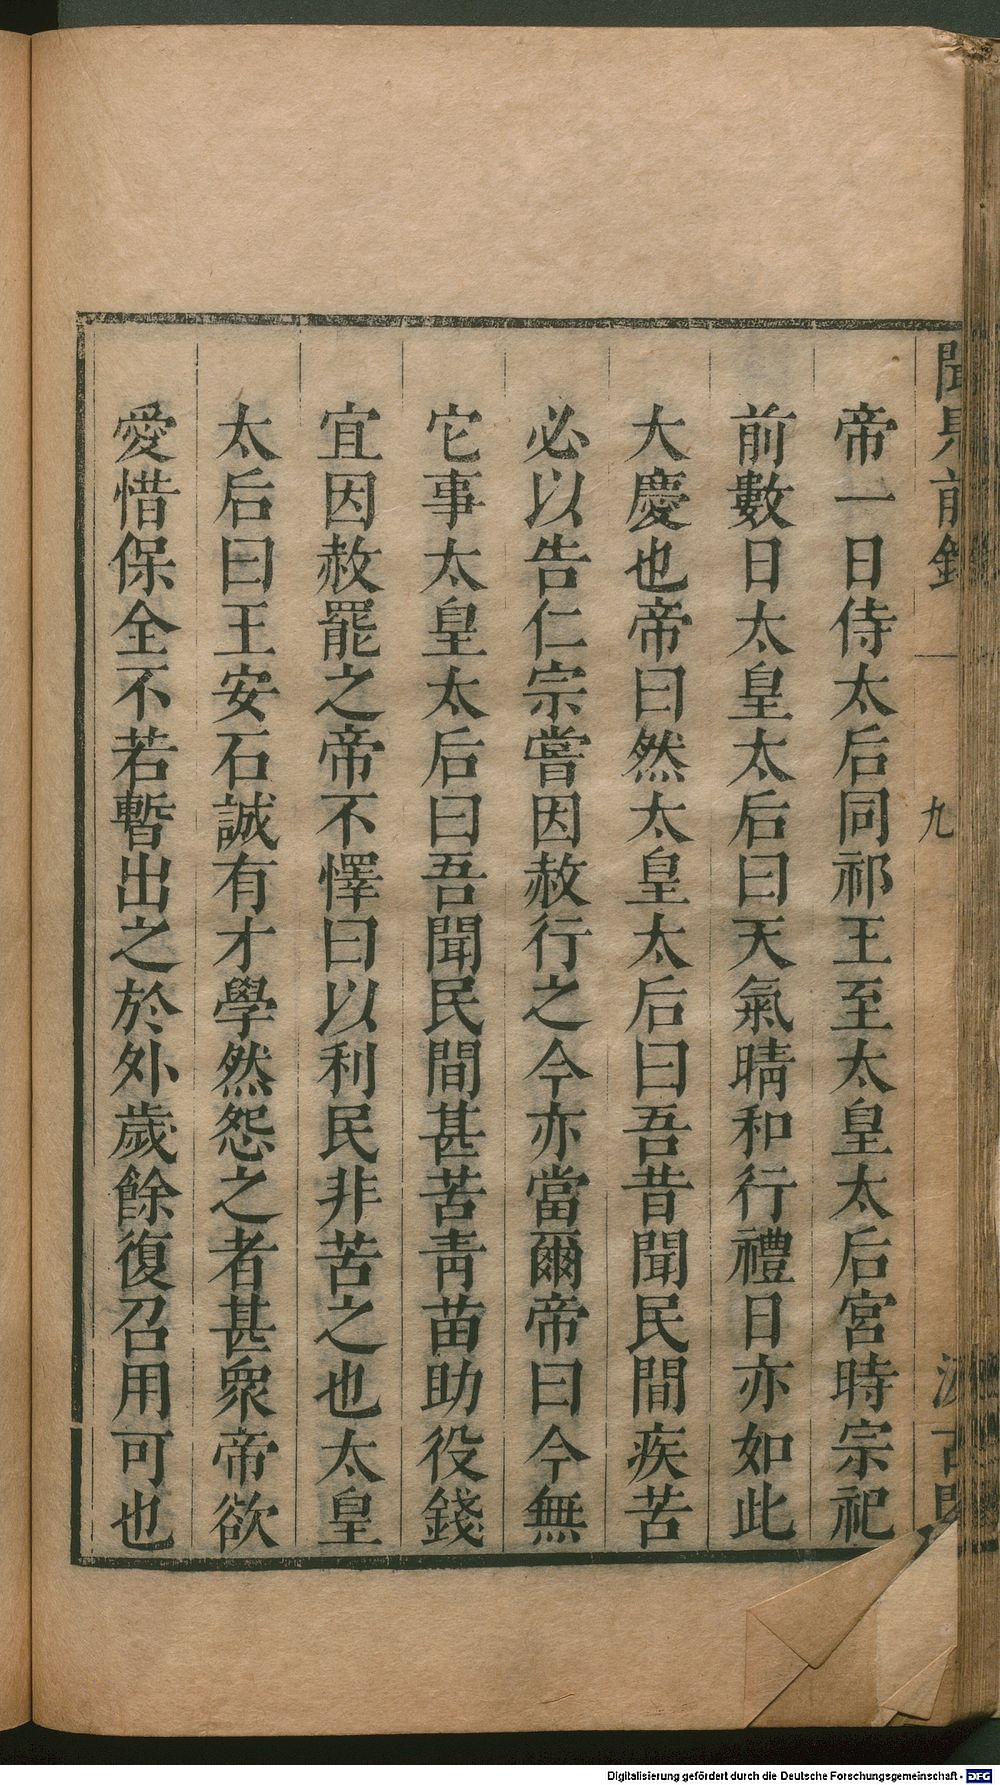 聞見前錄
一
九
汲古閣
帝一日侍太后同祁王至太皇太后宮時宗祀
前數日太皇太后曰天氣晴和行禮日亦如此
大慶也帝曰然太皇太后曰吾昔聞民間疾苦
必以告仁宗嘗因赦行之今亦當爾帝曰今無
它事太皇太后曰吾聞民間甚苦靑苗助役錢
宜因赦罷之帝不懌曰以利民非苦之也太皇
太后曰王安石誠有才學然怨之者甚衆帝欲
愛惜保全不若暫出之於外歲餘復召用可也
Digitalisierung gefördert durch die Deutsche Forschungsgemeinschaft - DFG